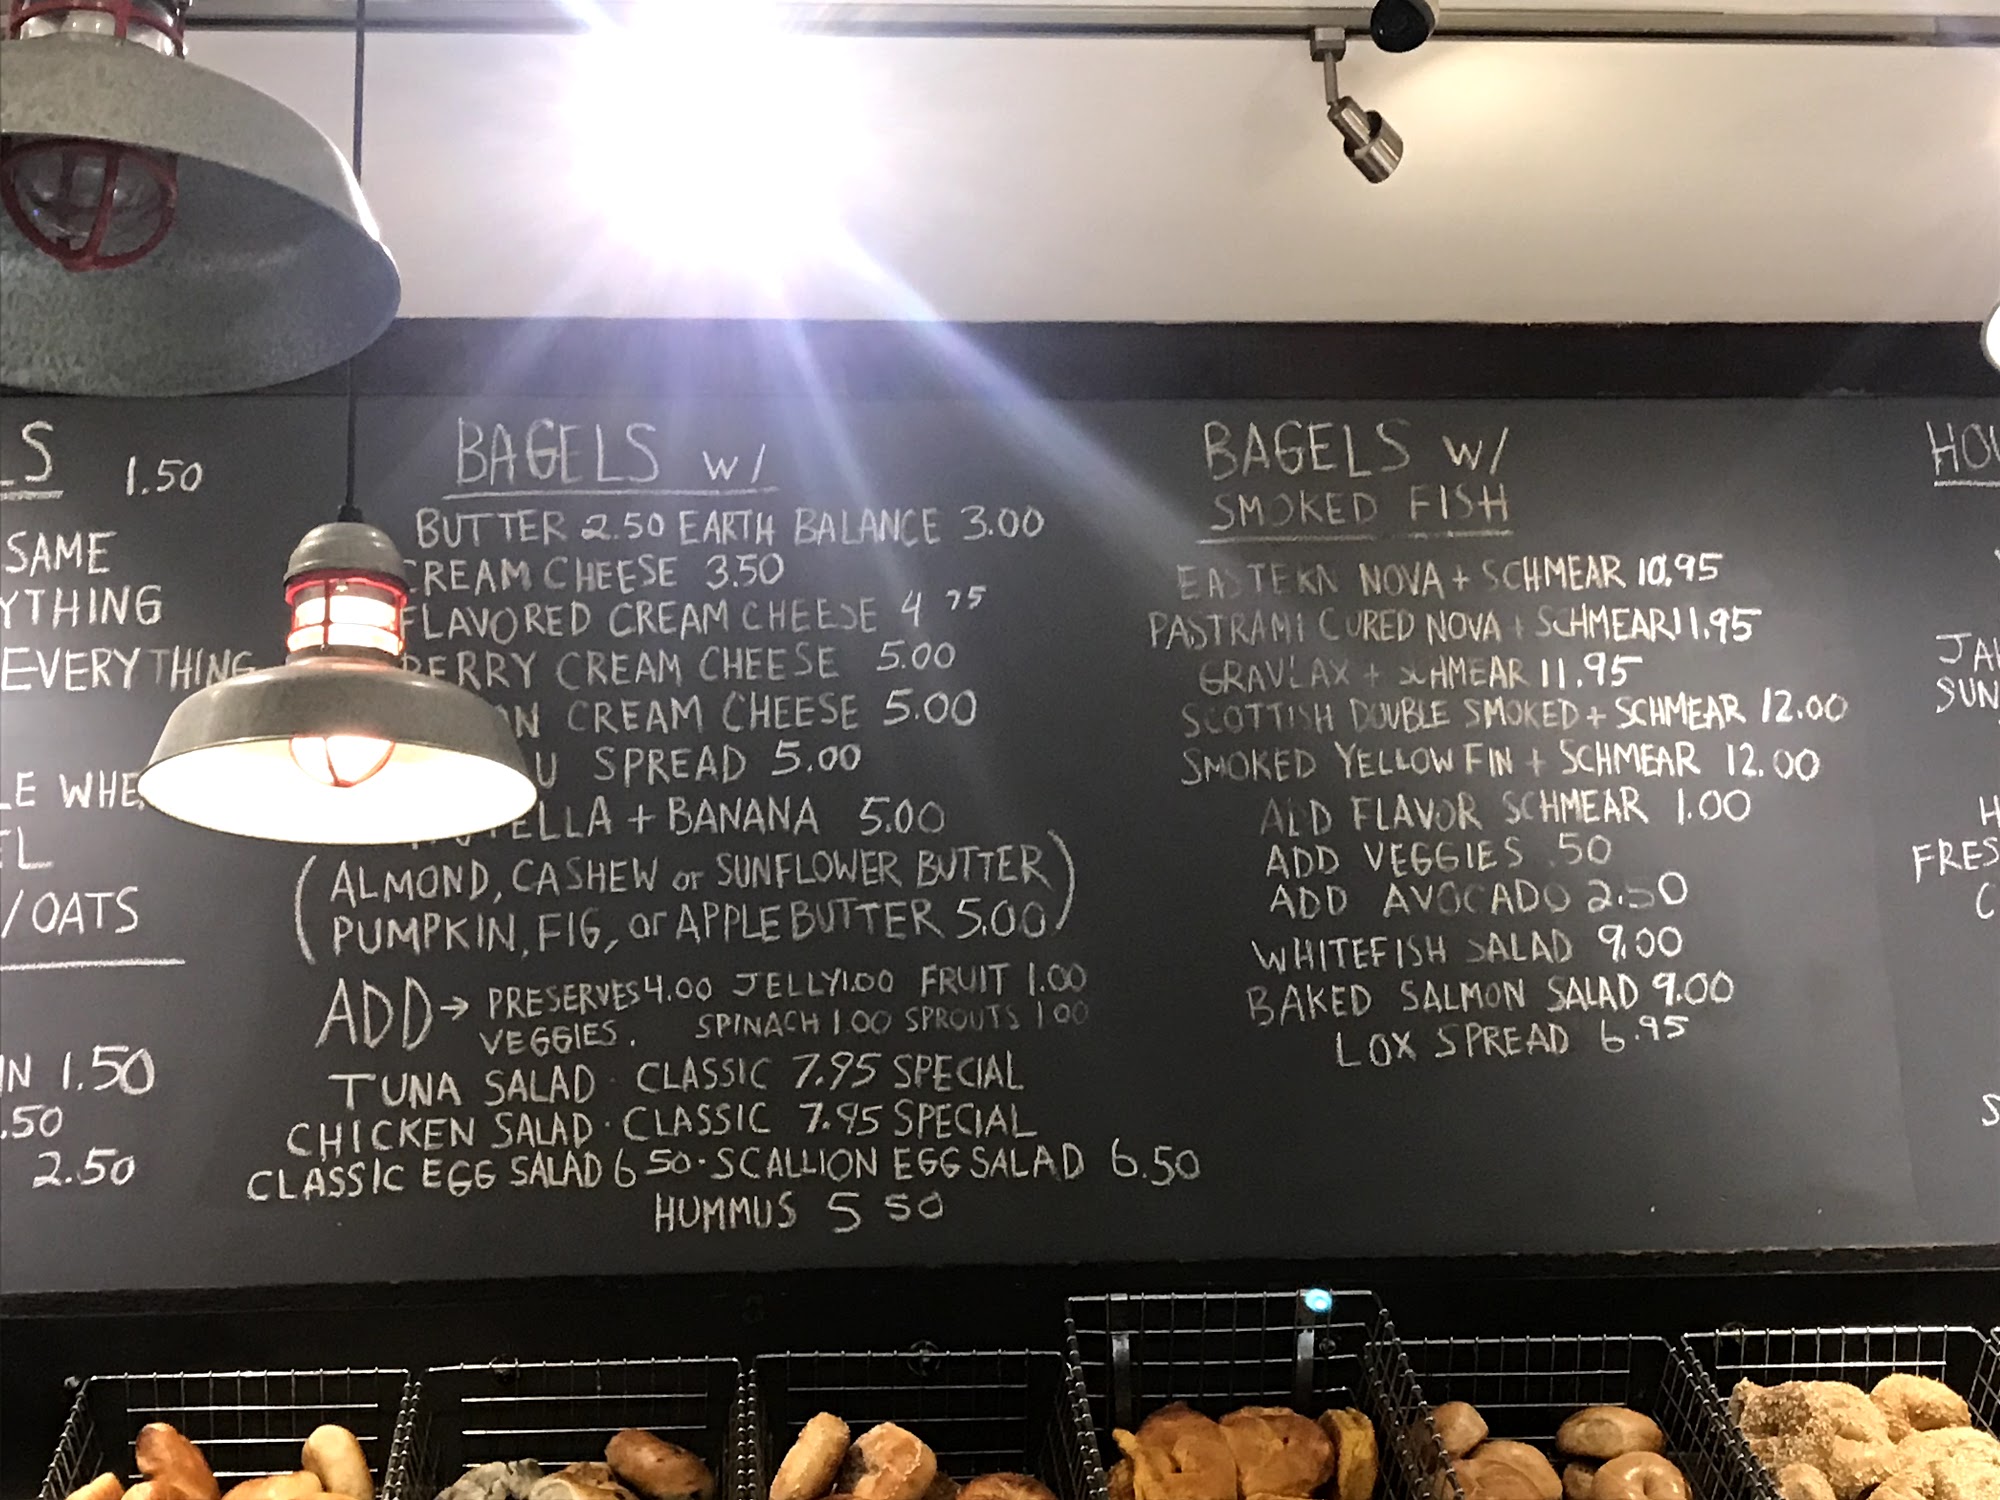 1.50
SAME
EVERYTHING
WHE
/OATS
1.50
.50
2.50
BAGELS w/
BUTTER 2.50 EARTH BALANCE 3.00
CREAM CHEESE 3.50
FLAVORED CREAM CHEESE 4 75
BERRY CREAM CHEESE 5.00
CREAM CHEESE 5.00
SPREAD 5.00
+ BANANA 5.00
(ALMOND, CASHEW or SUNFLOWER BUTTER
PUMPKIN, FIG, or APPLE BUTTER 5.00)
ADD → PRESERVES 4.00 JELLY 1.00 FRUIT 1.00
VEGGIES. SPINACH 1.00 SPROUTS 1 00
TUNA SALAD · CLASSIC 7.95 SPECIAL
CHICKEN SALAD · CLASSIC 7.95 SPECIAL
CLASSIC EGG SALAD 6 50 · SCALLION EGG SALAD 6.50
HUMMUS 5 50
BAGELS w/
SMOKED FISH
EASTERN NOVA + SCHMEAR 10.95
PASTRAMI CURED NOVA + SCHMEAR 11.95
GRAVLAX + SCHMEAR 11.95
SCOTTISH DOUBLE SMOKED + SCHMEAR 12.00
SMOKED YELLOW FIN + SCHMEAR 12.00
ADD FLAVOR SCHMEAR 1.00
ADD VEGGIES .50
ADD AVOCADO 2.50
WHITEFISH SALAD 9.00
BAKED SALMON SALAD 9.00
LOX SPREAD 6.95